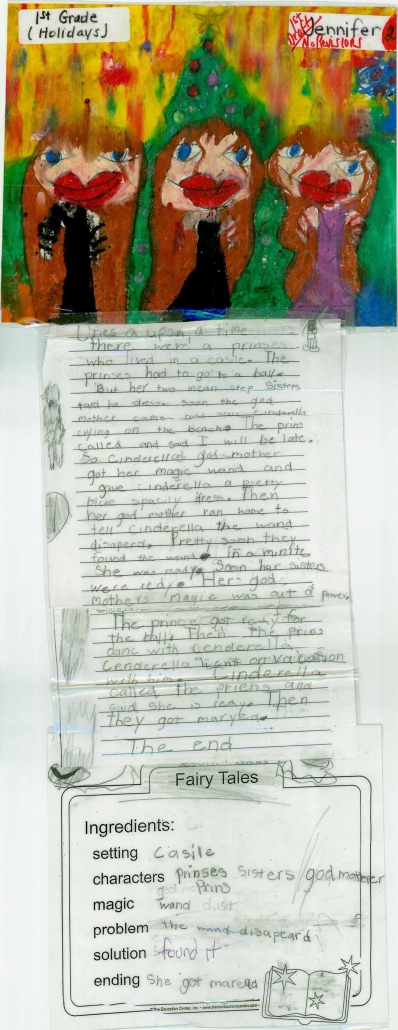 1st Grade
(Holidays)
1st Draft
No Revisions
Jennifer
2
Ones a upon a time
there were a prinses
who lived in a casle. The
prinses had to go to a ball.
But her two mean step Sisters
dress. Soon the god
mother came and Cinderella
crying on the bench. The prins
called and said I will be late.
So Cinderellas god-mother
got her magic wand and
gave cinderella a pretty
blue dress. Then
her god mother ran home to
tell Cinderella the wand
disaperd. Pretty soon they
found the wand. In a minite
she was redy. Soon her sisters
were redye. Her god
mothers magic was out of power
The prince got redy for
the ball. Then the Prins
danc with Cenderella
Cenderella went on vacation
with him. Cinderella
called the priens and
said she is redy. Then
they got maryed.
The end
Fairy Tales
Ingredients:
setting Casile
characters prinses sisters god motherer
Prins
magic wand dust
problem the wand disapeard
solution found it
ending She got maread
©The Education Center, Inc.